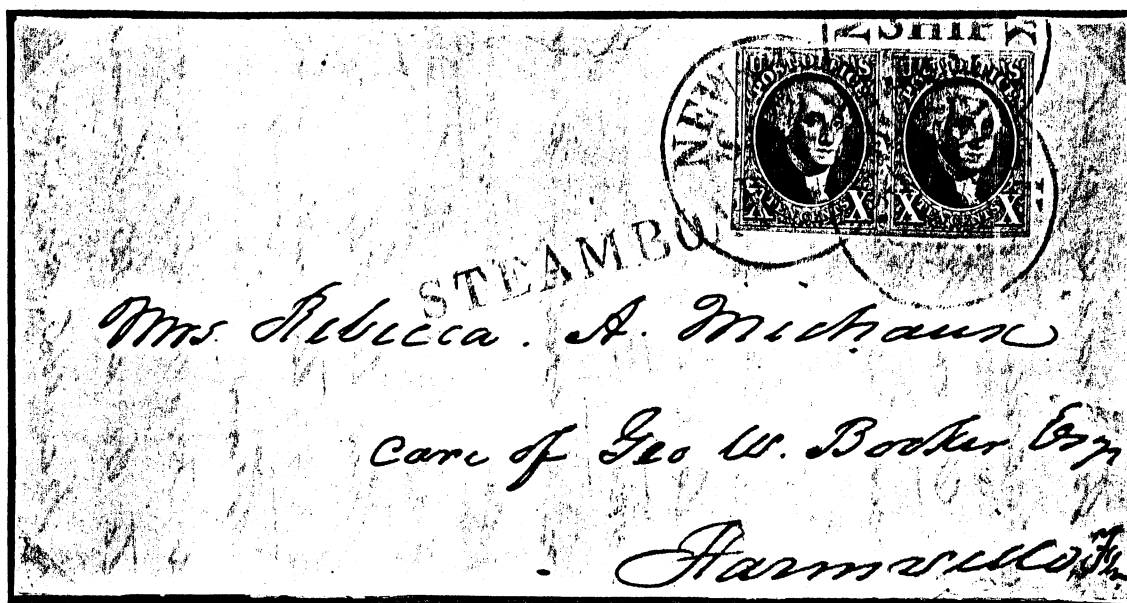 2 SHIP
NEW
U.S. POST OFFICE
X TEN CENTS X
X TEN CENTS X
STEAMBO
Mrs. Rebecca. A. Michaux
Care of Geo W. Booker Esq
Farmville